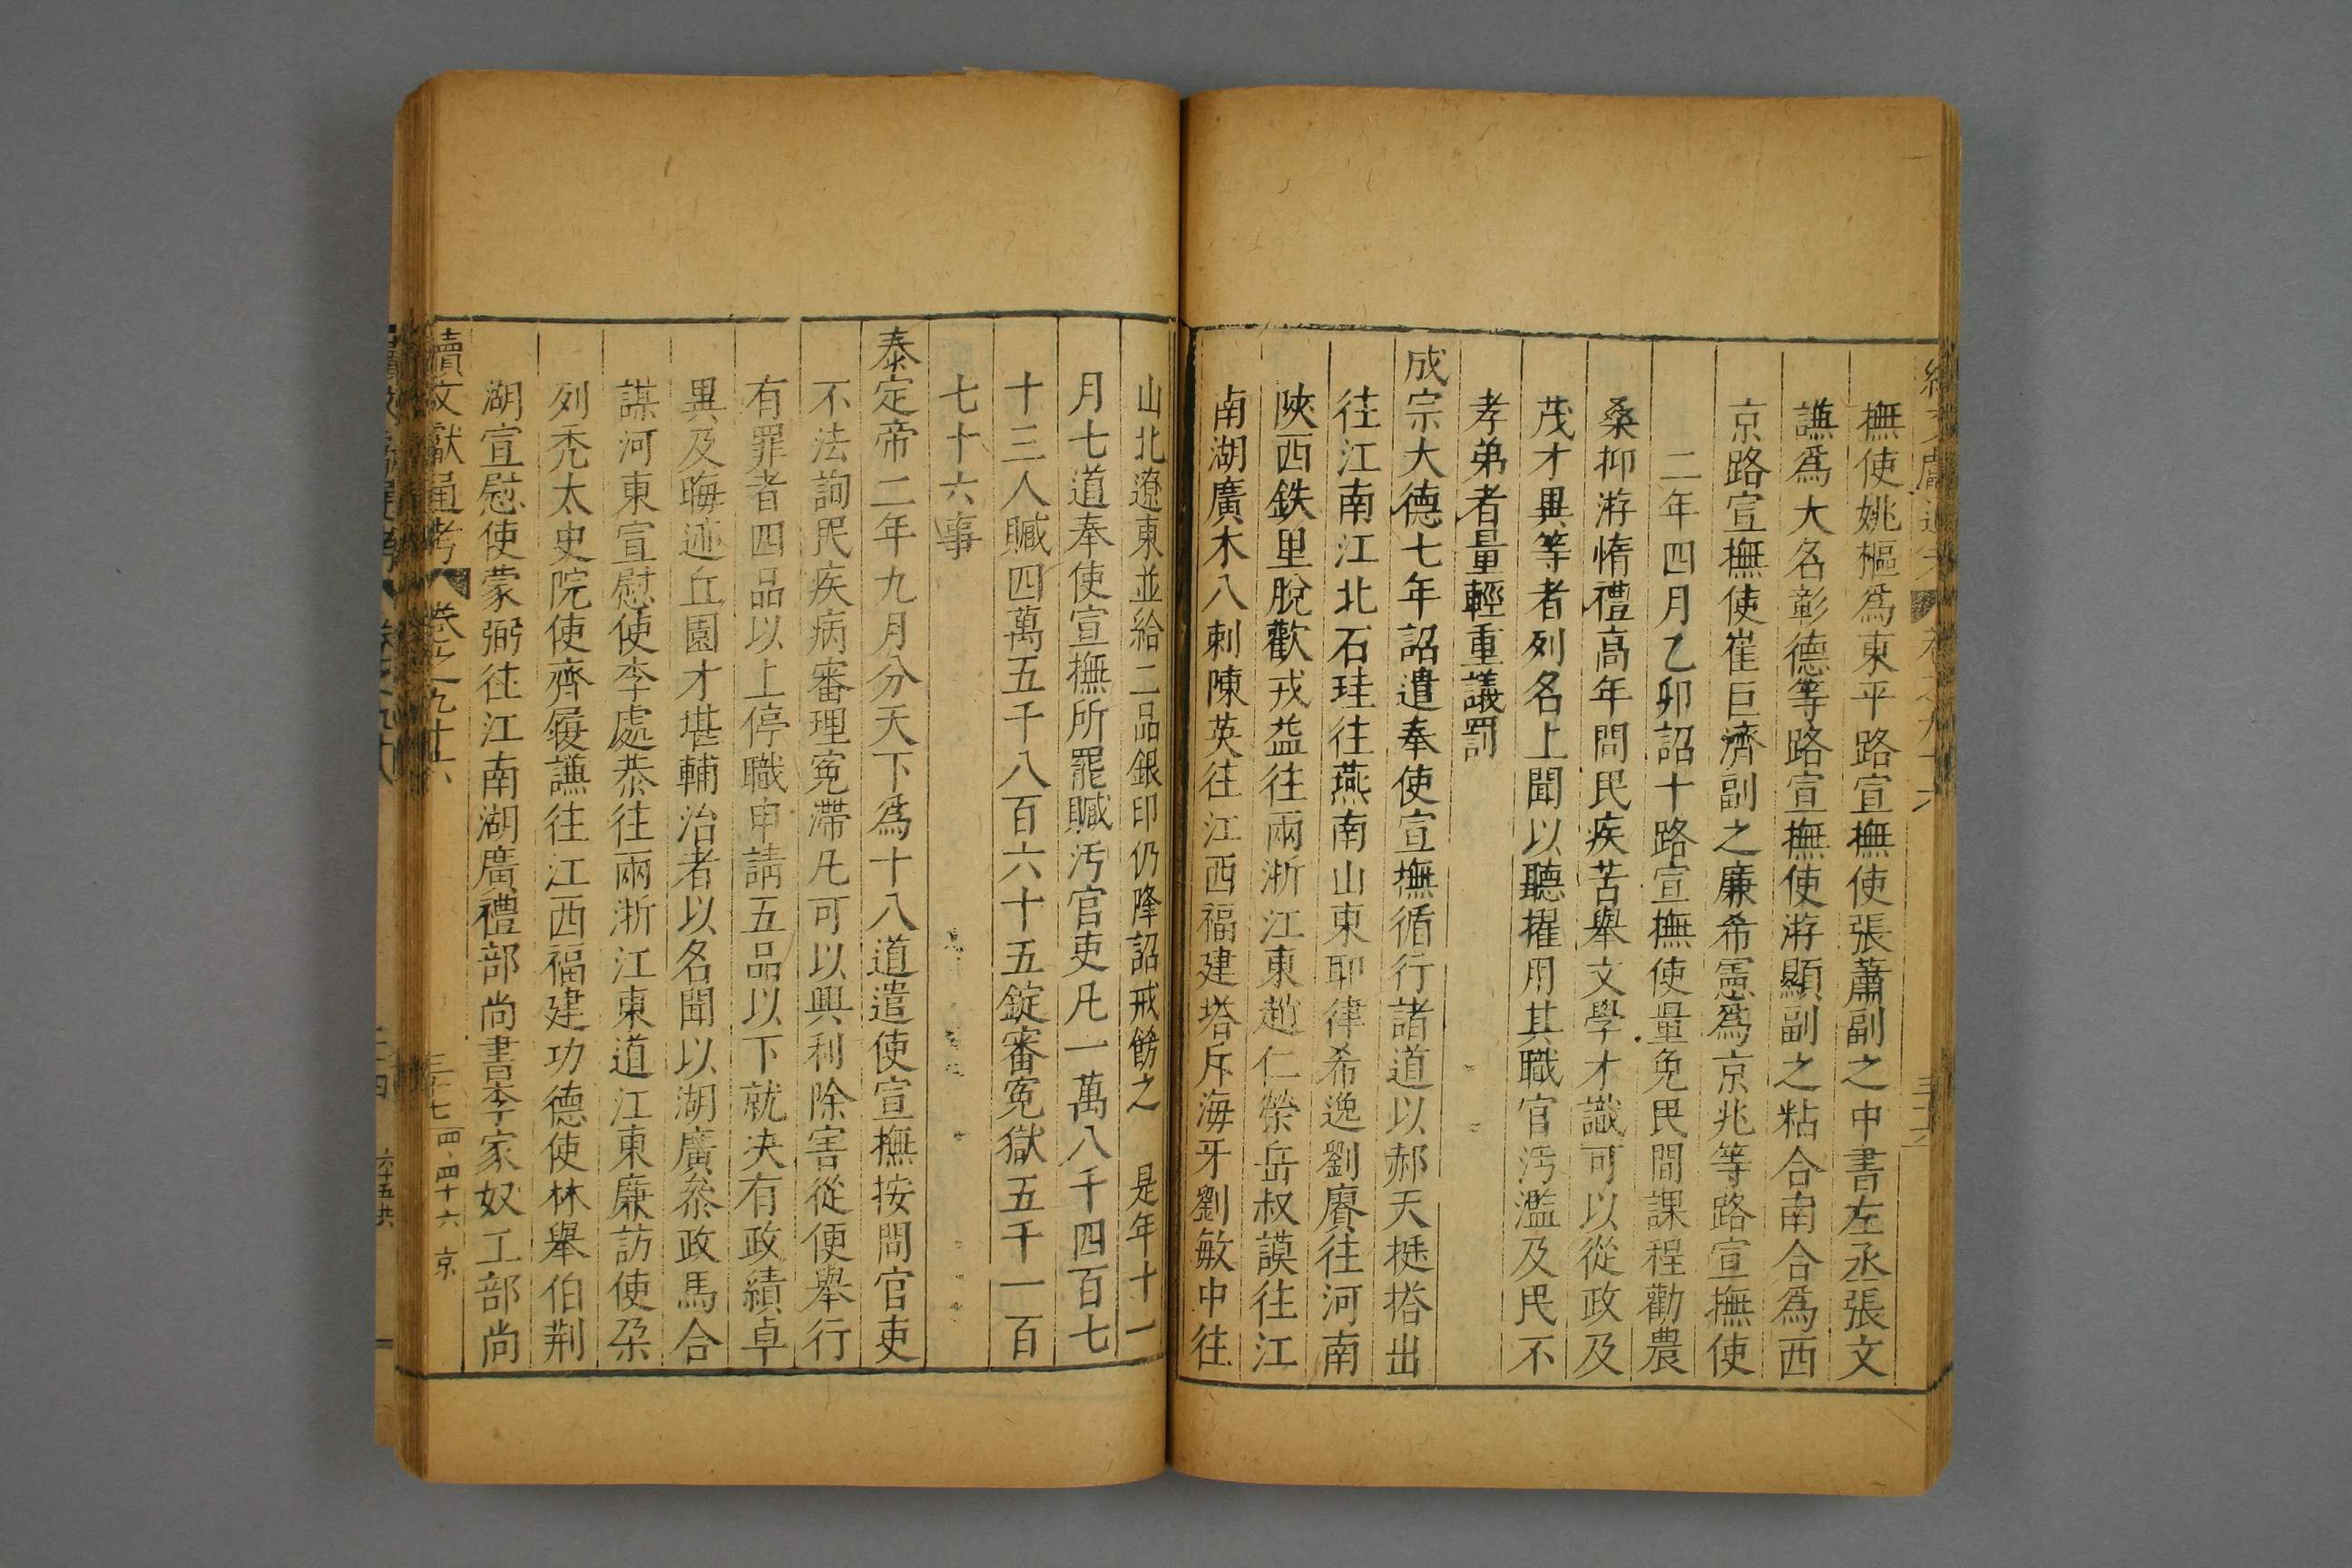 撫使姚樞爲東平路宣撫使張蕭副之中書左丞張文
謙爲大名彰德等路宣撫使游顯副之粘合南合爲西
京路宣撫使崔巨濟副之廉希憲爲京兆等路宣撫使
二年四月乙卯詔十路宣撫使量免民間課程勸農
桑抑游惰禮高年問民疾苦舉文學才識可以從政及
茂才異等者列名上聞以聽擢用其職官污濫及民不
孝弟者量輕重議罰
成宗大德七年詔遣奉使宣撫循行諸道以郝天挺塔出
往江南江北石珪往燕南山東耶律希逸劉賡往河南
陝西鉄里脫歡戎益往兩浙江東趙仁榮岳叔謨往江
南湖廣木八剌陳英往江西福建塔斥海牙劉敏中往
山北遼東並給二品銀印仍降詔戒飭之　是年十一
月七道奉使宣撫所罷贓污官吏凡一萬八千四百七
十三人贓四萬五千八百六十五錠審冤獄五千一百
七十六事
泰定帝二年九月分天下爲十八道遣使宣撫按問官吏
不法詢民疾病審理冤滯凡可以興利除害從便舉行
有罪者四品以上停職申請五品以下就決有政績卓
異及晦迹丘園才堪輔治者以名聞以湖廣叅政馬合
謀河東宣慰使李處恭往兩浙江東道江東廉訪使朶
列禿太史院使齊履謙往江西福建功德使林舉伯荆
湖宣慰使蒙弼往江南湖廣禮部尚書李家奴工部尚
續文獻通考　卷之九十六　三十七　四四十六　京